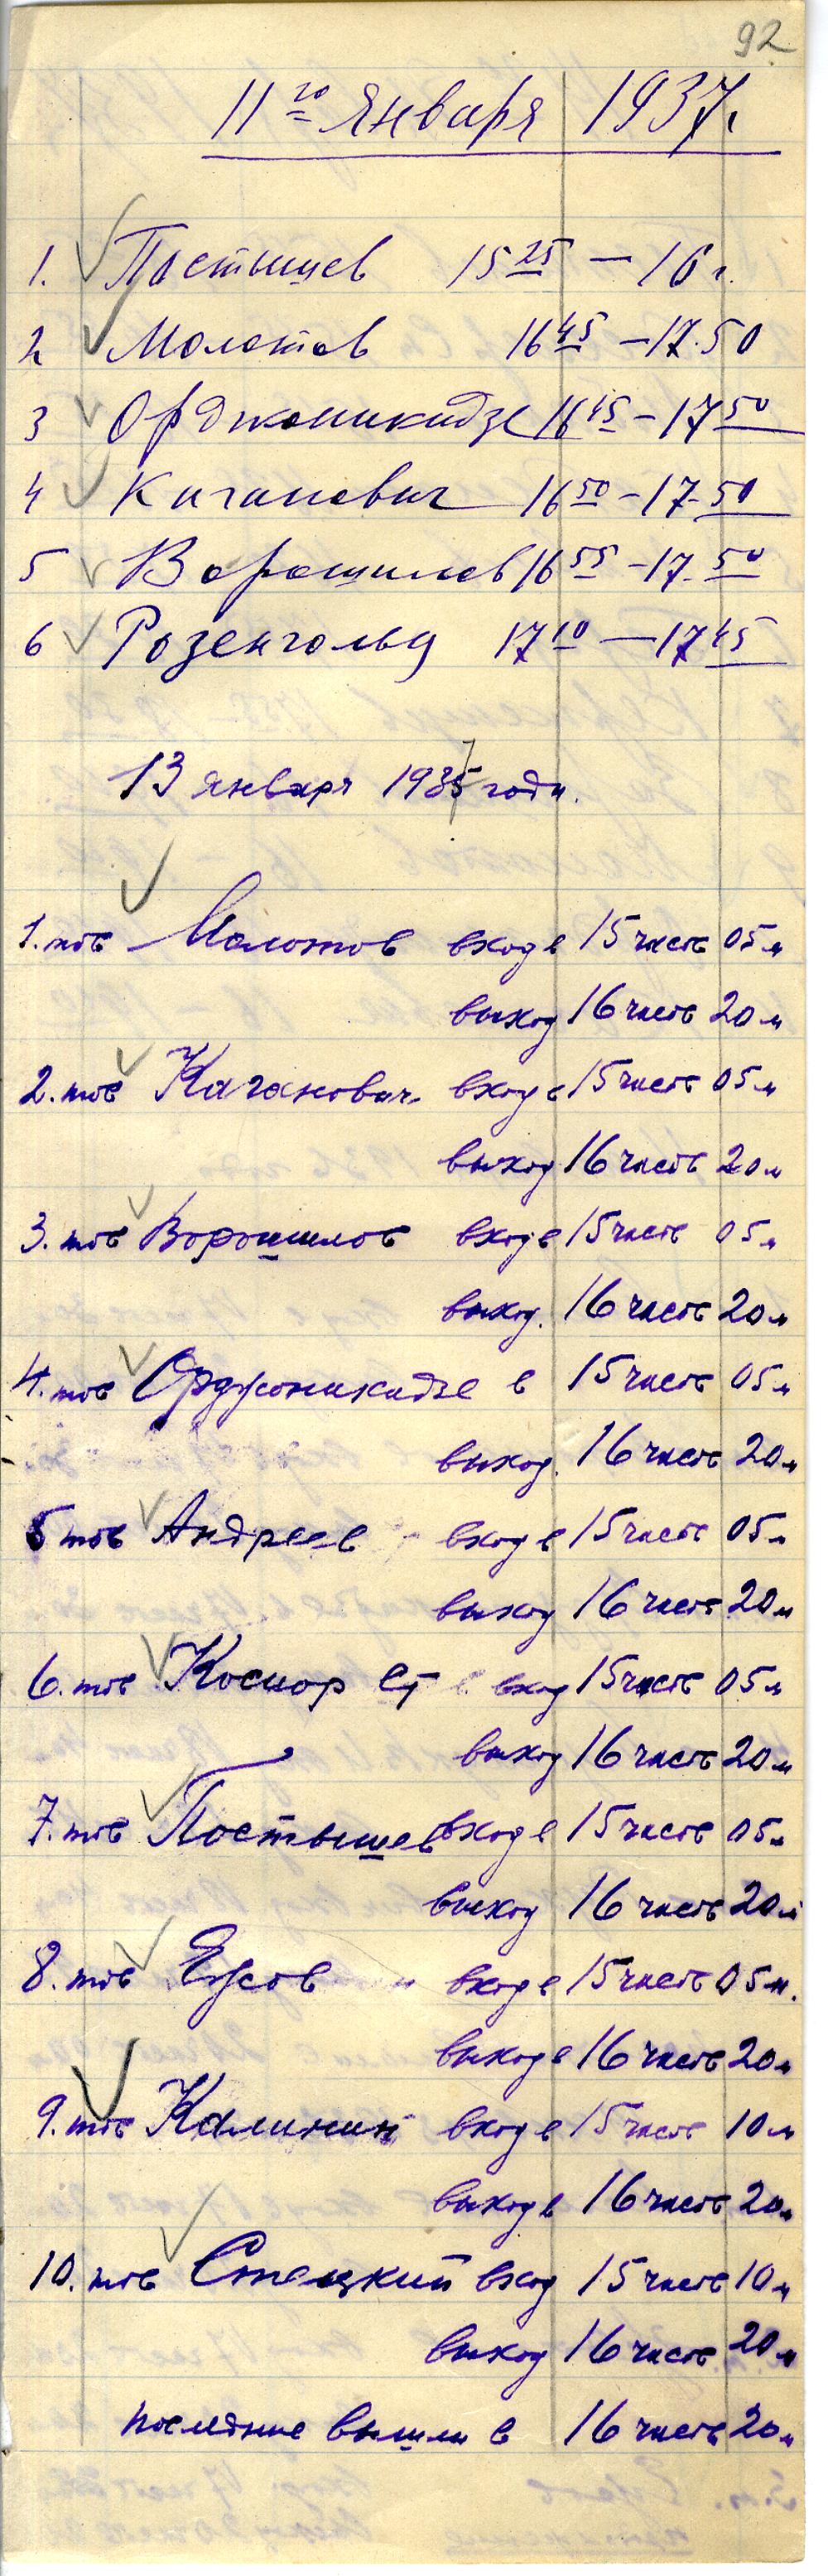 92
11го января 1937г.
1. Постышев 15 25 — 16 г.
2 Молотов 16 45 — 17.50
3 Орджоникидзе 16 45 — 17 50
4 Каганович 16 50 — 17-50
5 Ворошилов 16 55 — 17 50
6 Розенгольц 17 10 — 17 45
13 января 1937 года.
1. тов Молотов вход в 15 часов 05 м
выход 16 часов 20 м
2. тов Каганович. вход в 15 часов 05 м
выход 16 часов 20 м
3. тов Ворошилов вход в 15 часов 05 м
выход. 16 часов 20 м
4. тов Орджоникидзе в 15 часов 05 м
выход. 16 часов 20 м
5 тов Андреев - вход в 15 часов 05 м
выход 16 часов 20 м
6. тов Косиор Ст вход 15 часов 05 м
выход 16 часов 20 м
7. тов Постышев вход в 15 часов 05 м
выход 16 часов 20 м
8. тов Ежов вход в 15 часов 05 м.
выход в 16 часов 20 м
9. тов Калинин вход в 15 часов 10 м
выход в 16 часов 20 м
10. тов Стецкий вход 15 часов 10 м
выход 16 часов 20 м
последние вышли в 16 часов 20 м